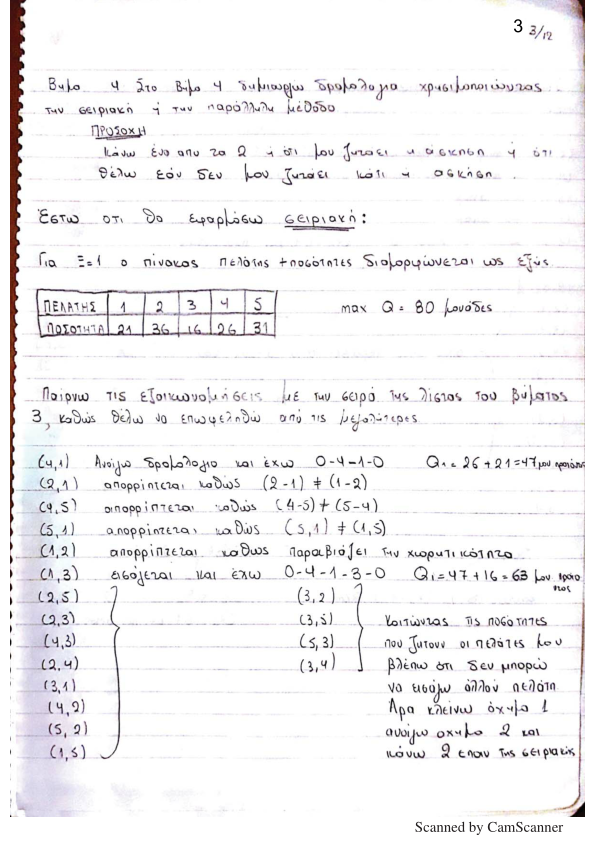 3 3/12
Βημα 4 Στο Βήμα 4 δημιουργω δρομολογια χρησιμοποιώντας
την σειριακή ή την παράλληλη μέθοδο
ΠΡΟΣΟΧΗ
Κάνω ένα απο τα 2 ή ότι μου ζητάει η άσκηση ή ότι
θέλω εάν δεν μου ζητάει κάτι η άσκηση.
Έστω οτι θα εφαρμόσω σειριακή:
Για Ξ=1 ο πίνακας πελάτης +ποσότητες διαμορφώνεται ως εξής
ΠΕΛΑΤΗΣ 1 2 3 4 5
ΠΟΣΟΤΗΤΑ 21 36 16 26 31
max Q = 80 μονάδες
Παίρνω τις εξοικονομήσεις με την σειρά της λίστας του βήματος
3, καθώς θέλω να επωφεληθώ από τις μεγαλύτερες
(4,1) Ανοίγω δρομολογιο και έχω 0-4-1-0 Q1 = 26+21=47 μον προϊόντος
(2,1) απορρίπτεται καθώς (2-1) ≠ (1-2)
(4,5) απορρίπτεται καθώς (4-5) ≠ (5-4)
(5,1) απορρίπτεται καθώς (5,1) ≠ (1,5)
(1,2) απορρίπτεται καθως παραβιάζει την χωρητικότητα
(1,3) εισάγεται και έχω 0-4-1-3-0 Q1=47+16=63 μον προϊοντος
(2,5) (3,2)
(2,3) (3,5) Κοιτώντας τις ποσότητες
(4,3) (5,3) που ζητουν οι πελάτες μου
(2,4) (3,4) βλέπω ότι δεν μπορώ
(3,1) να εισάγω άλλον πελάτη
(4,2) Άρα κλείνω όχημα 1
(5,2) ανοίγω οχημα 2 και
(1,5) κάνω 2 επαν της σειριακής
Scanned by CamScanner